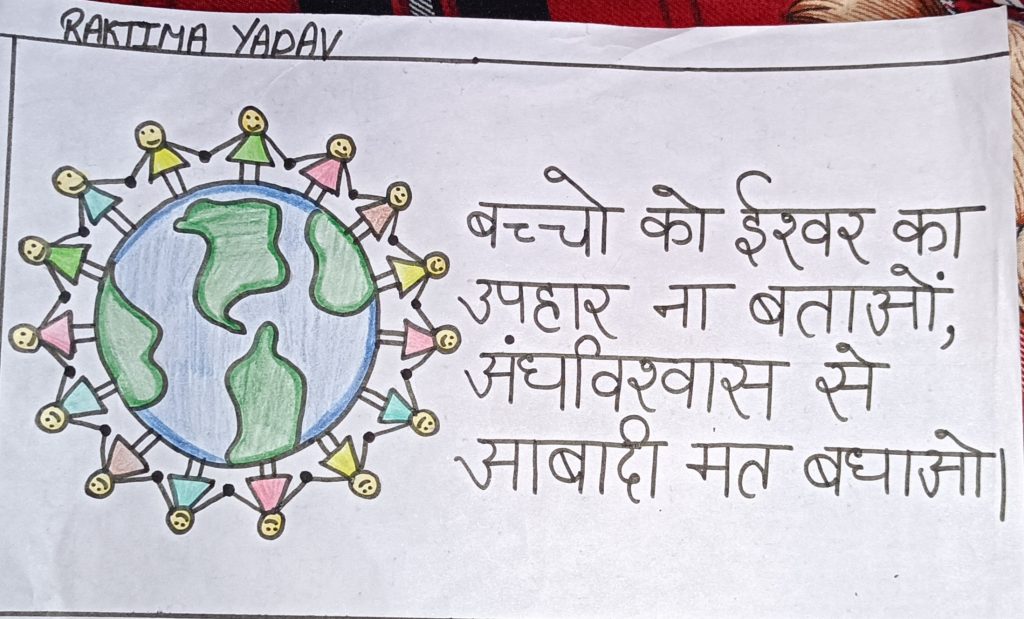 RAKTIMA YADAV
बच्चो को ईश्वर का
उपहार ना बताओं,
अंधविश्वास से
आबादी मत बधाओ।